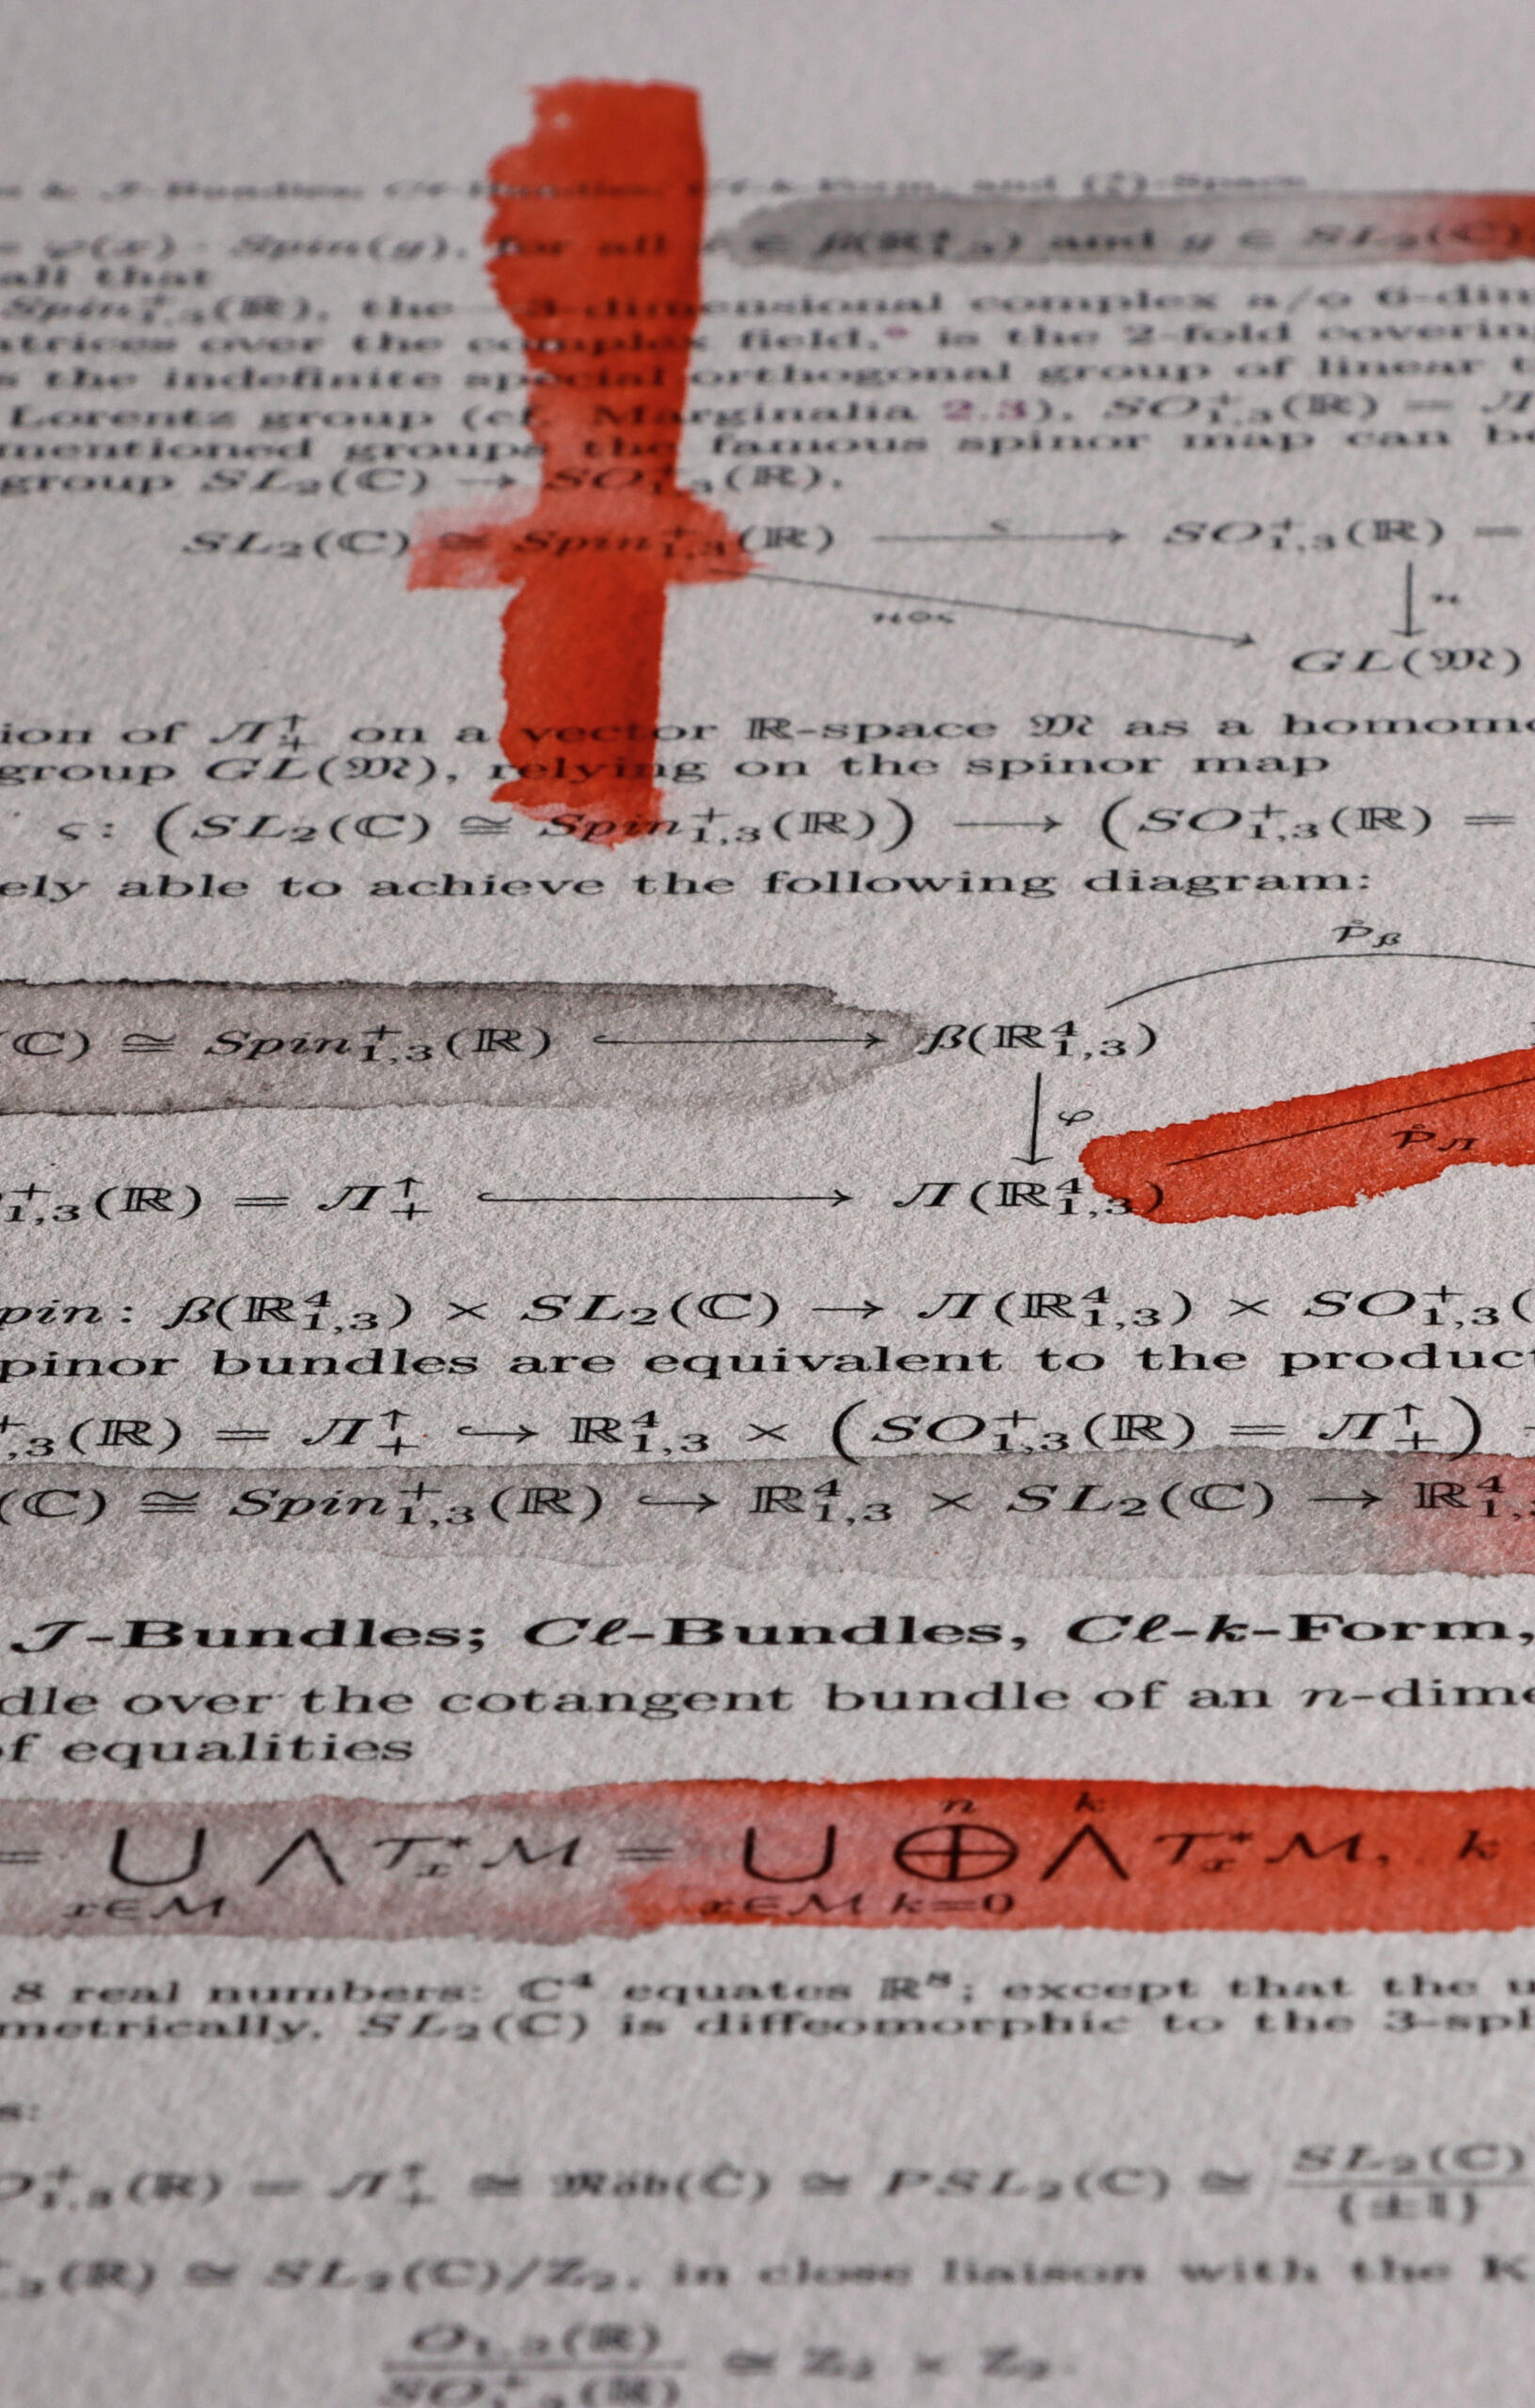 & J-Bundles; Cℓ-Bundles, Cℓ-k-Form, and -Space
= φ(x) · Spin(y), for all ∈ ß(ℝ⁴₁,₃) and y ∈ SL₂(ℂ)
all that
Spin⁺₁,₃(ℝ), the 3-dimensional complex a/o 6-dim
atrices over the complex field,• is the 2-fold coverin
s the indefinite special orthogonal group of linear t
Lorentz group (cf. Marginalia 2.3), SO⁺₁,₃(ℝ) = Л
mentioned groups the famous spinor map can be
group SL₂(ℂ) → SO⁺₁,₃(ℝ).
SL₂(ℂ) ≅ Spin⁺₁,₃(ℝ) ⟶ SO⁺₁,₃(ℝ) =
ς
GL(𝔐)
ion of Л↑₊ on a vector ℝ-space 𝔐 as a homomo
group GL(𝔐), relying on the spinor map
ς: (SL₂(ℂ) ≅ Spin⁺₁,₃(ℝ)) ⟶ (SO⁺₁,₃(ℝ) =
ely able to achieve the following diagram:
P̊ß
(ℂ) ≅ Spin⁺₁,₃(ℝ) ⟶ ß(ℝ⁴₁,₃)
φ
P̊Л
⁺₁,₃(ℝ) = Л↑₊ ⟶ Л(ℝ⁴₁,₃)
pin: ß(ℝ⁴₁,₃) × SL₂(ℂ) → Л(ℝ⁴₁,₃) × SO⁺₁,₃(
pinor bundles are equivalent to the product
⁺,₃(ℝ) = Л↑₊ ↪ ℝ⁴₁,₃ × (SO⁺₁,₃(ℝ) = Л↑₊)
(ℂ) ≅ Spin⁺₁,₃(ℝ) ↪ ℝ⁴₁,₃ × SL₂(ℂ) → ℝ⁴₁,
J-Bundles; Cℓ-Bundles, Cℓ-k-Form,
dle over the cotangent bundle of an n-dime
of equalities
= ⋃ x∈M ⋀ T*ₓM = ⋃ x∈M ⨁ⁿ k=0 ⋀ᵏ T*ₓM, k
8 real numbers: ℂ⁴ equates ℝ⁸; except that the u
metrically, SL₂(ℂ) is diffeomorphic to the 3-sph
s:
O⁺₁,₃(ℝ) = Л↑₊ ≅ Möb(Ĉ) ≅ PSL₂(ℂ) ≅ SL₂(ℂ)/{±1}
,₃(ℝ) ≅ SL₂(ℂ)/ℤ₂, in close liaison with the K
O₁,₃(ℝ)/SO⁺₁,₃(ℝ) ≅ ℤ₂ × ℤ₂